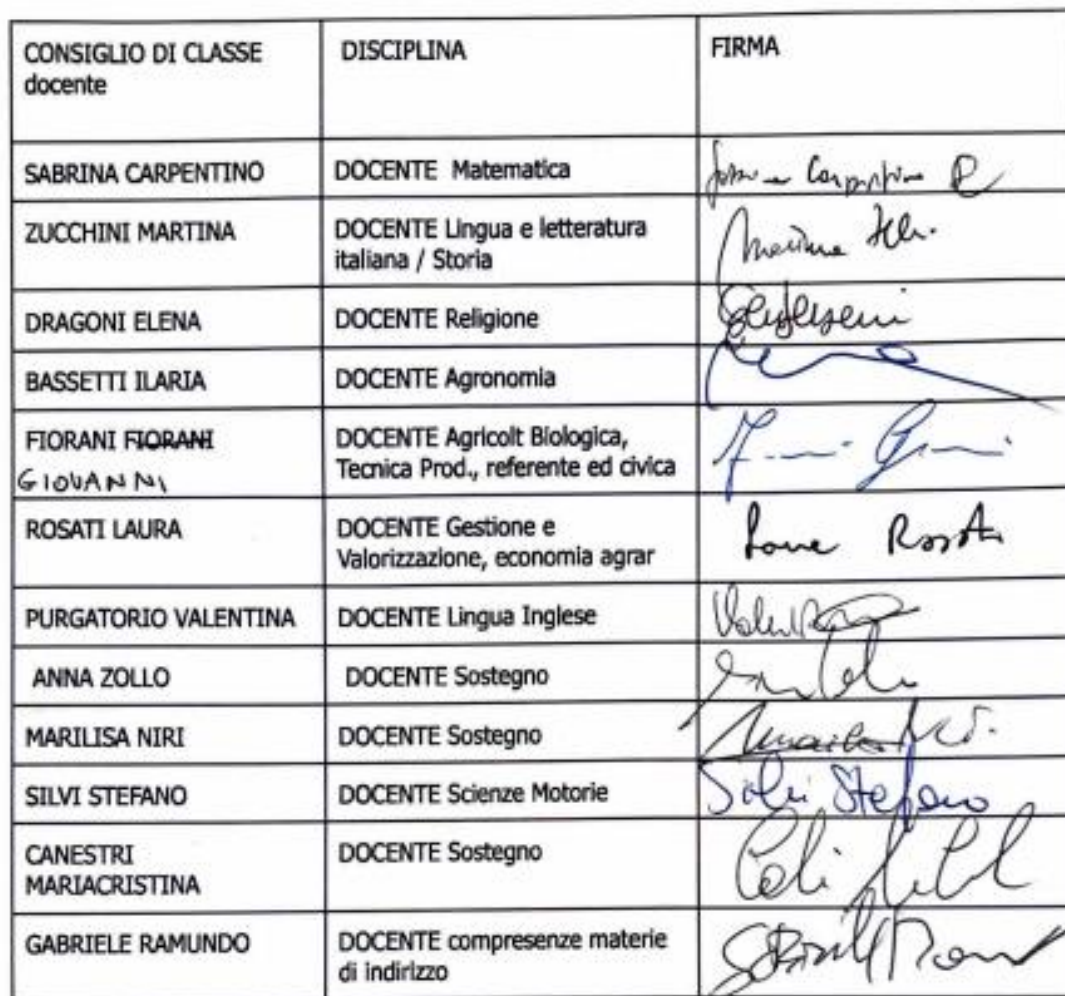 CONSIGLIO DI CLASSE
docente
DISCIPLINA
FIRMA
SABRINA CARPENTINO
DOCENTE Matematica
ZUCCHINI MARTINA
DOCENTE Lingua e letteratura
italiana / Storia
DRAGONI ELENA
DOCENTE Religione
BASSETTI ILARIA
DOCENTE Agronomia
FIORANI FIORANI
GIOVANNI
DOCENTE Agricolt Biologica,
Tecnica Prod., referente ed civica
ROSATI LAURA
DOCENTE Gestione e
Valorizzazione, economia agrar
PURGATORIO VALENTINA
DOCENTE Lingua Inglese
ANNA ZOLLO
DOCENTE Sostegno
MARILISA NIRI
DOCENTE Sostegno
SILVI STEFANO
DOCENTE Scienze Motorie
Silvi Stefano
CANESTRI
MARIACRISTINA
DOCENTE Sostegno
GABRIELE RAMUNDO
DOCENTE compresenze materie
di indirizzo